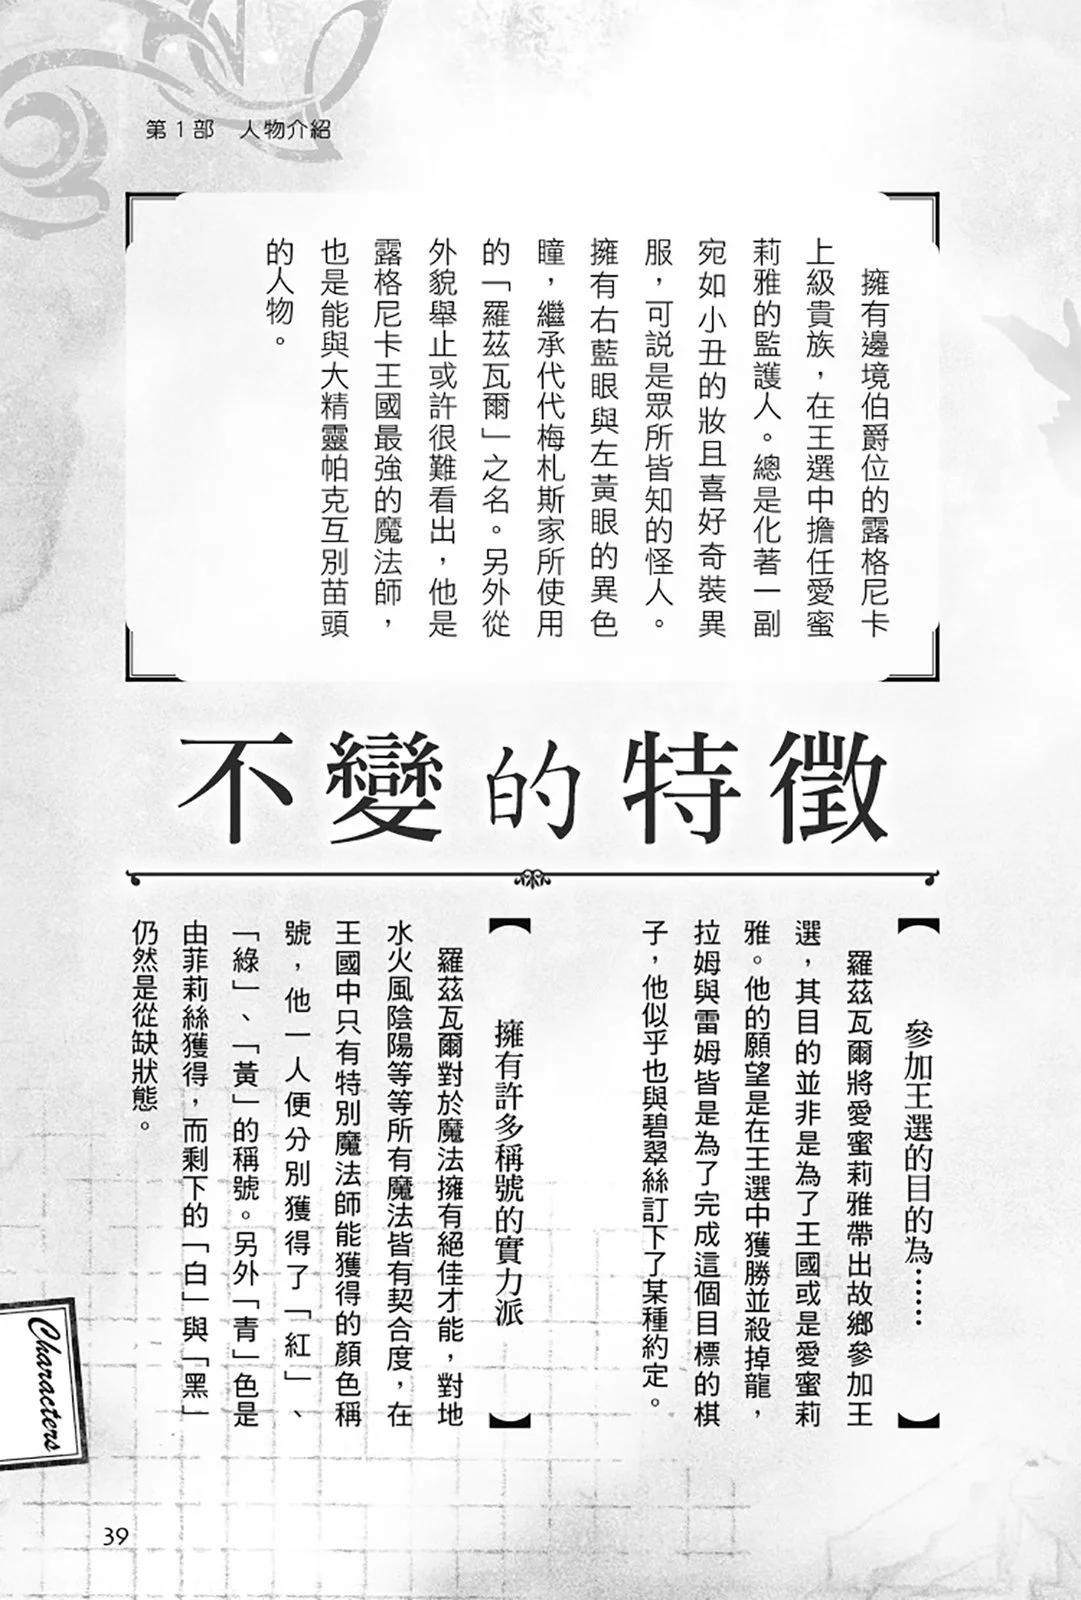 第1部　人物介紹
擁有邊境伯爵位的露格尼卡
上級貴族，在王選中擔任愛蜜
莉雅的監護人。總是化著一副
宛如小丑的妝且喜好奇裝異
服，可說是眾所皆知的怪人。
擁有右藍眼與左黃眼的異色
瞳，繼承代代梅札斯家所使用
的「羅茲瓦爾」之名。另外從
外貌舉止或許很難看出，他是
露格尼卡王國最強的魔法師，
也是能與大精靈帕克互別苗頭
的人物。
不變的特徵
【參加王選的目的為……】
羅茲瓦爾將愛蜜莉雅帶出故鄉參加王
選，其目的並非是為了王國或是愛蜜莉
雅。他的願望是在王選中獲勝並殺掉龍，
拉姆與雷姆皆是為了完成這個目標的棋
子，他似乎也與碧翠絲訂下了某種約定。
【擁有許多稱號的實力派】
羅茲瓦爾對於魔法擁有絕佳才能，對地
水火風陰陽等等所有魔法皆有契合度，在
王國中只有特別魔法師能獲得的顏色稱
號，他一人便分別獲得了「紅」、
「綠」、「黃」的稱號。另外「青」色是
由菲莉絲獲得，而剩下的「白」與「黑」
仍然是從缺狀態。
Characters
39